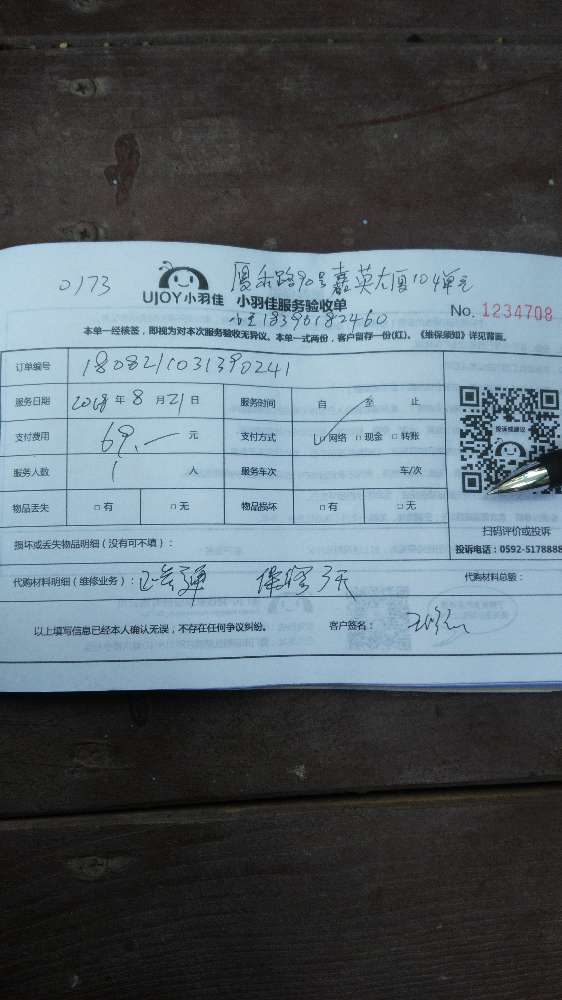 0173 厦禾路90号嘉英大厦104单元
UJOY小羽佳 小羽佳服务验收单
18396182460 No. 1234708
本单一经核签，即视为对本次服务验收无异议。本单一式两份，客户留存一份(红)。《维保须知》详见背面。
订单编号 1808211031390241
服务日期 2018 年 8 月 21 日 服务时间 自 至 止
投诉或建议
支付费用 69.— 元 支付方式 □网络 □现金 □转账
服务人数 1 人 服务车次 车/次
物品丢失 □有 □无 物品损坏 □有 □无
扫码评价或投诉
损坏或丢失物品明细（没有可不填）： 投诉电话：0592-5178888
代购材料明细（维修业务）： 保修3天 代购材料总额：
以上填写信息已经本人确认无误，不存在任何争议纠纷。 客户签名：